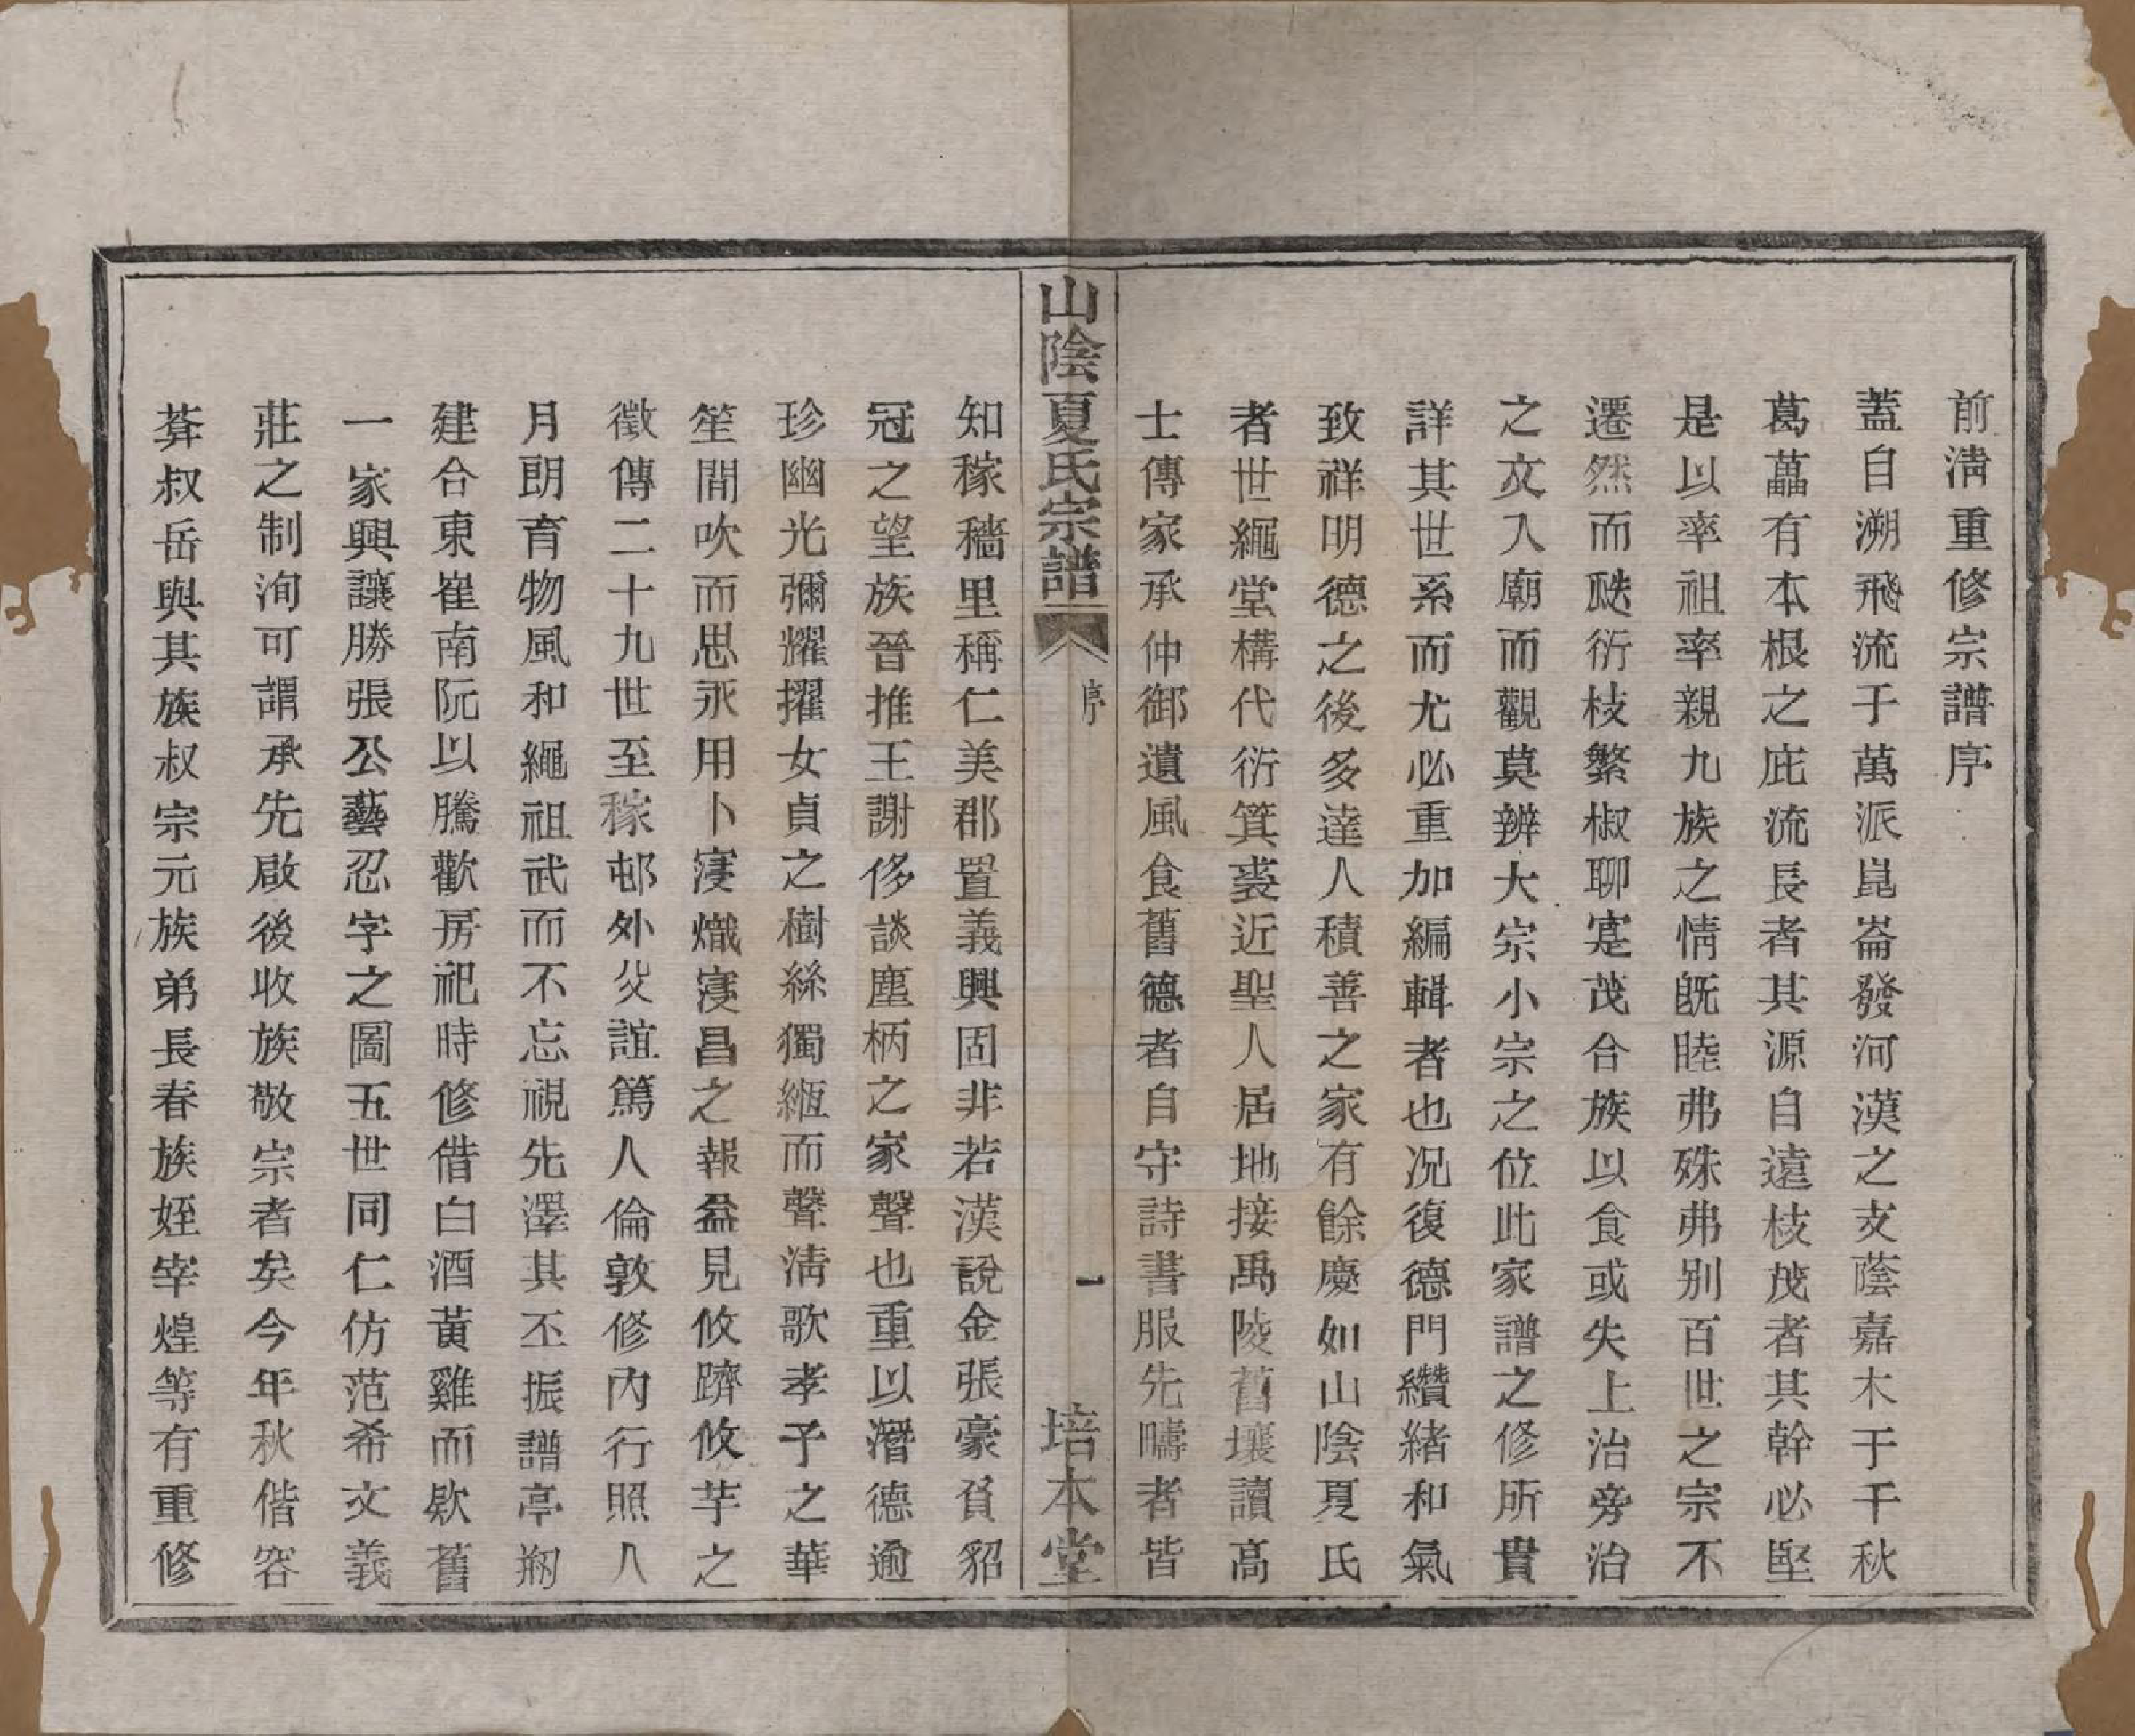 前清重修宗譜序
蓋自溯飛流于萬派崑崙發河漢之支蔭嘉木于千秋
葛藟有本根之庇流長者其源自遠枝茂者其幹必堅
是以率祖率親九族之情既睦弗殊弗別百世之宗不
遷然而瓞衍枝繁椒聊寔茂合族以食或失上治旁治
之文入廟而觀莫辨大宗小宗之位此家譜之修所貴
詳其世系而尤必重加編輯者也况復德門纘緒和氣
致祥明德之後多達人積善之家有餘慶如山陰夏氏
者世繩堂構代衍箕裘近聖人居地接禹陵舊壤讀高
士傳家承仲御遺風食舊德者自守詩書服先疇者皆
山陰夏氏宗譜
序
一
培本堂
知稼穡里稱仁美郡置義興固非若漢說金張豪貧貂
冠之望族晉推王謝侈談塵柄之家聲也重以潛德逾
珍幽光彌耀擢女貞之樹絲獨緪而聲清歌孝子之華
笙間吹而思永用卜寖熾寖昌之報益見攸躋攸芋之
徵傳二十九世至稼邨外父誼篤人倫敦修內行照人
月朗育物風和繩祖武而不忘視先澤其丕振譜亭剏
建合東崔南阮以騰歡房祀時修借白酒黃雞而欵舊
一家興讓勝張公藝忍字之圖五世同仁仿范希文義
莊之制洵可謂承先啟後收族敬宗者矣今年秋偕容
葊叔岳與其族叔宗元族弟長春族姪宰煌等有重修